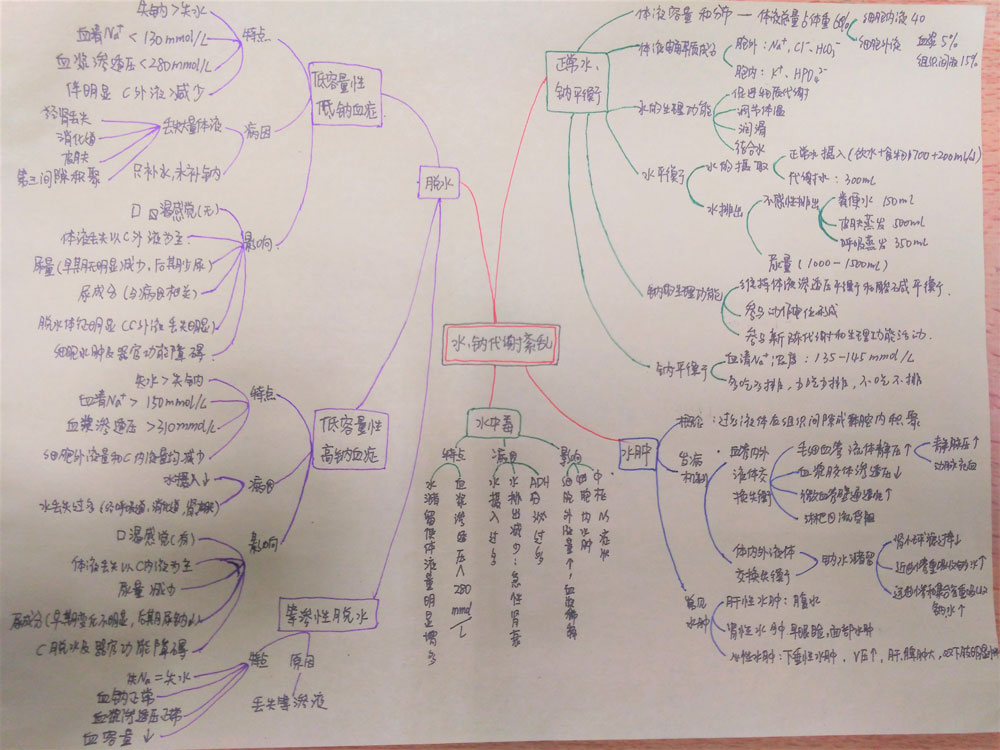 水、钠代谢紊乱
正常水、
钠平衡
体液容量和分布 — 体液总量占体重60%
细胞内液 40
细胞外液
血浆 5%
组织间液 15%
体液电解质成分
胞外：Na⁺、Cl⁻、HCO₃⁻
胞内：K⁺、HPO₄²⁻
水的生理功能
促进物质代谢
调节体温
润滑
结合水
水平衡
水的摄取
正常水摄入（饮水+食物）
代谢水：300mL
水排出
不感性排出
粪便水 150ml
皮肤蒸发 500ml
呼吸蒸发 350ml
尿量（1000-1500ml）
钠的生理功能
维持体液渗透压平衡和酸碱平衡
参与动作电位形成
参与新陈代谢和生理功能活动
钠平衡
血清Na⁺浓度：135-145mmol/L
多吃多排，少吃少排，不吃不排
水肿
概论：过多液体在组织间隙或体腔内积聚
发病
机制
血管内外
液体交
换失衡
毛细血管流体静压↑
静脉压↑
动脉充血
血浆胶体渗透压↓
微血管壁通透性↑
淋巴回流受阻
体内外液体
交换失衡
钠水潴留
肾小球滤过率↓
近曲小管重吸收钠水↑
远曲小管和集合管重吸收
钠水↑
常见
水肿
肝性水肿：腹水
肾性水肿 早眼睑，面部水肿
心性水肿：下垂性水肿，
水中毒
特点
水潴留使体液量明显增多
血浆渗透压＜280mmol/L
病因
水摄入过多
水排出减少：急性肾衰
ADH分泌过多
影响
细胞外液量↑，血液稀释
细胞内水肿
中枢N症状
脱水
低容量性
低钠血症
特点
失钠＞失水
血清Na⁺＜130mmol/L
血浆渗透压＜280mmol/L
伴明显C外液减少
病因
丢失大量体液
经肾丢失
消化道
皮肤
第三间隙积聚
只补水，未补钠
影响
口渴感觉（无）
体液丢失以C外液为主
尿量（早期无明显减少，后期少尿）
尿成分（与病因相关）
脱水体征明显（C外液丢失明显）
细胞水肿及器官功能障碍
低容量性
高钠血症
特点
失水＞失钠
血清Na⁺＞150mmol/L
血浆渗透压＞310mmol/L
细胞外液量和C内液量均减少
病因
水摄入↓
水丢失过多（经呼吸道，消化道，肾，皮肤）
影响
口渴感觉（有）
体液丢失以C内液为主
尿量减少
尿成分（早期变化不明显，后期尿钠↓）
C脱水及器官功能障碍
等渗性脱水
特点
失Na=失水
血钠正常
血浆渗透压正常
血容量↓
原因
丢失等渗液